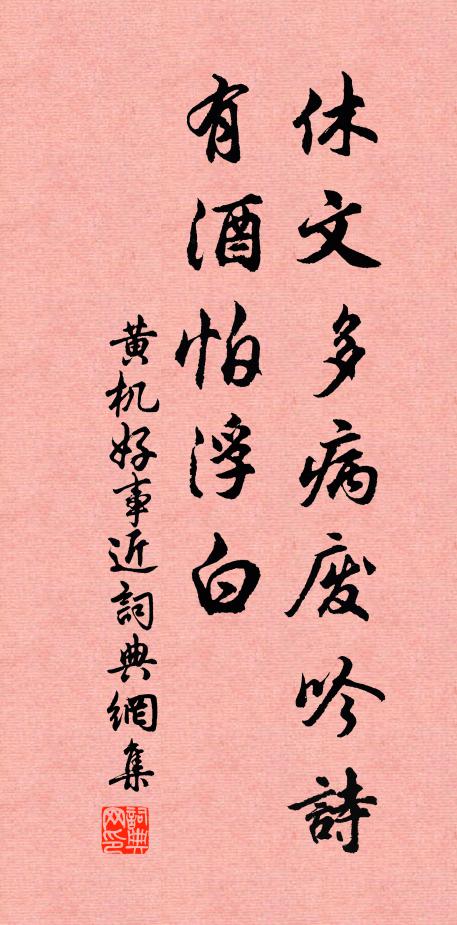 休文多病废吟詩
有酒怕浮白
黄机好事近詞典網集
詞典网印